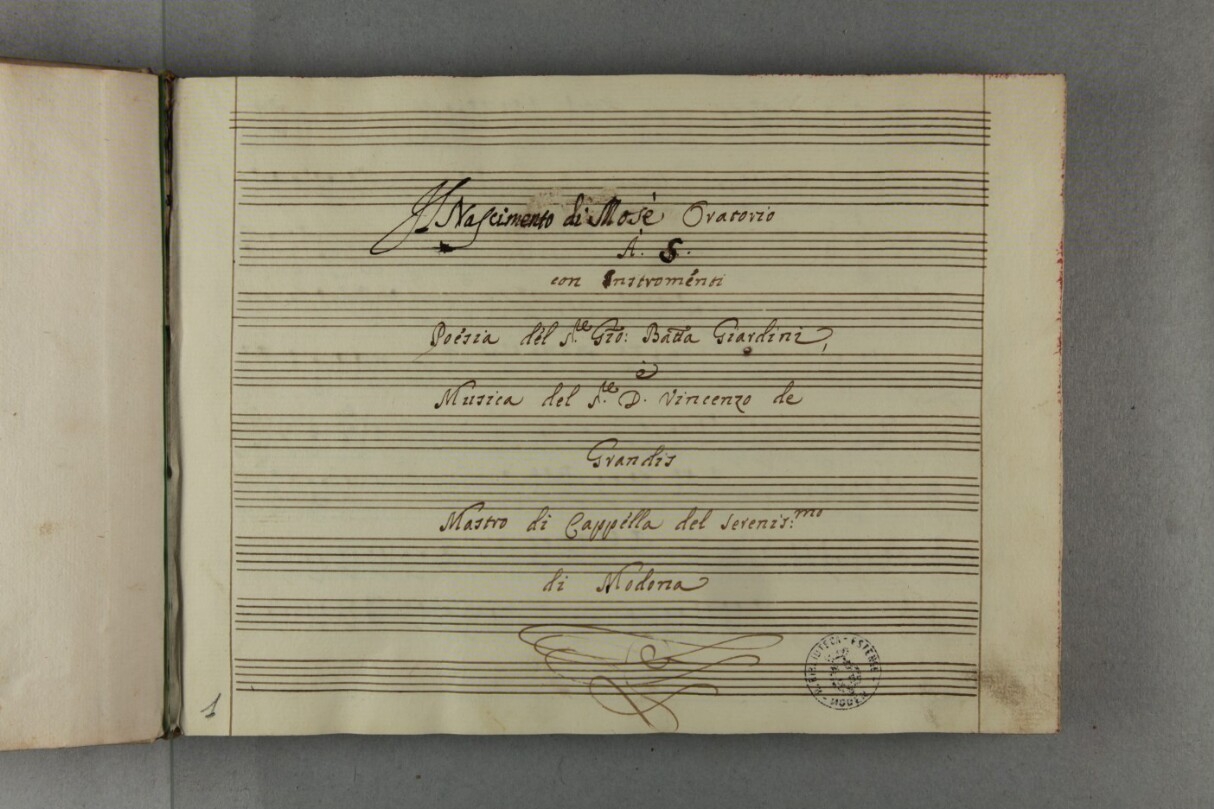 Il Nascimento di Mosè Oratorio
À. 5.
con Instromenti
Poesia del S.re Gio: Batta Giardini,
è
Musica del S.re D. Vincenzo de
Grandis
Mastro di Cappella del Serenis:mo
di Modona
R. BIBLIOTECA ESTENSE MODENA
1